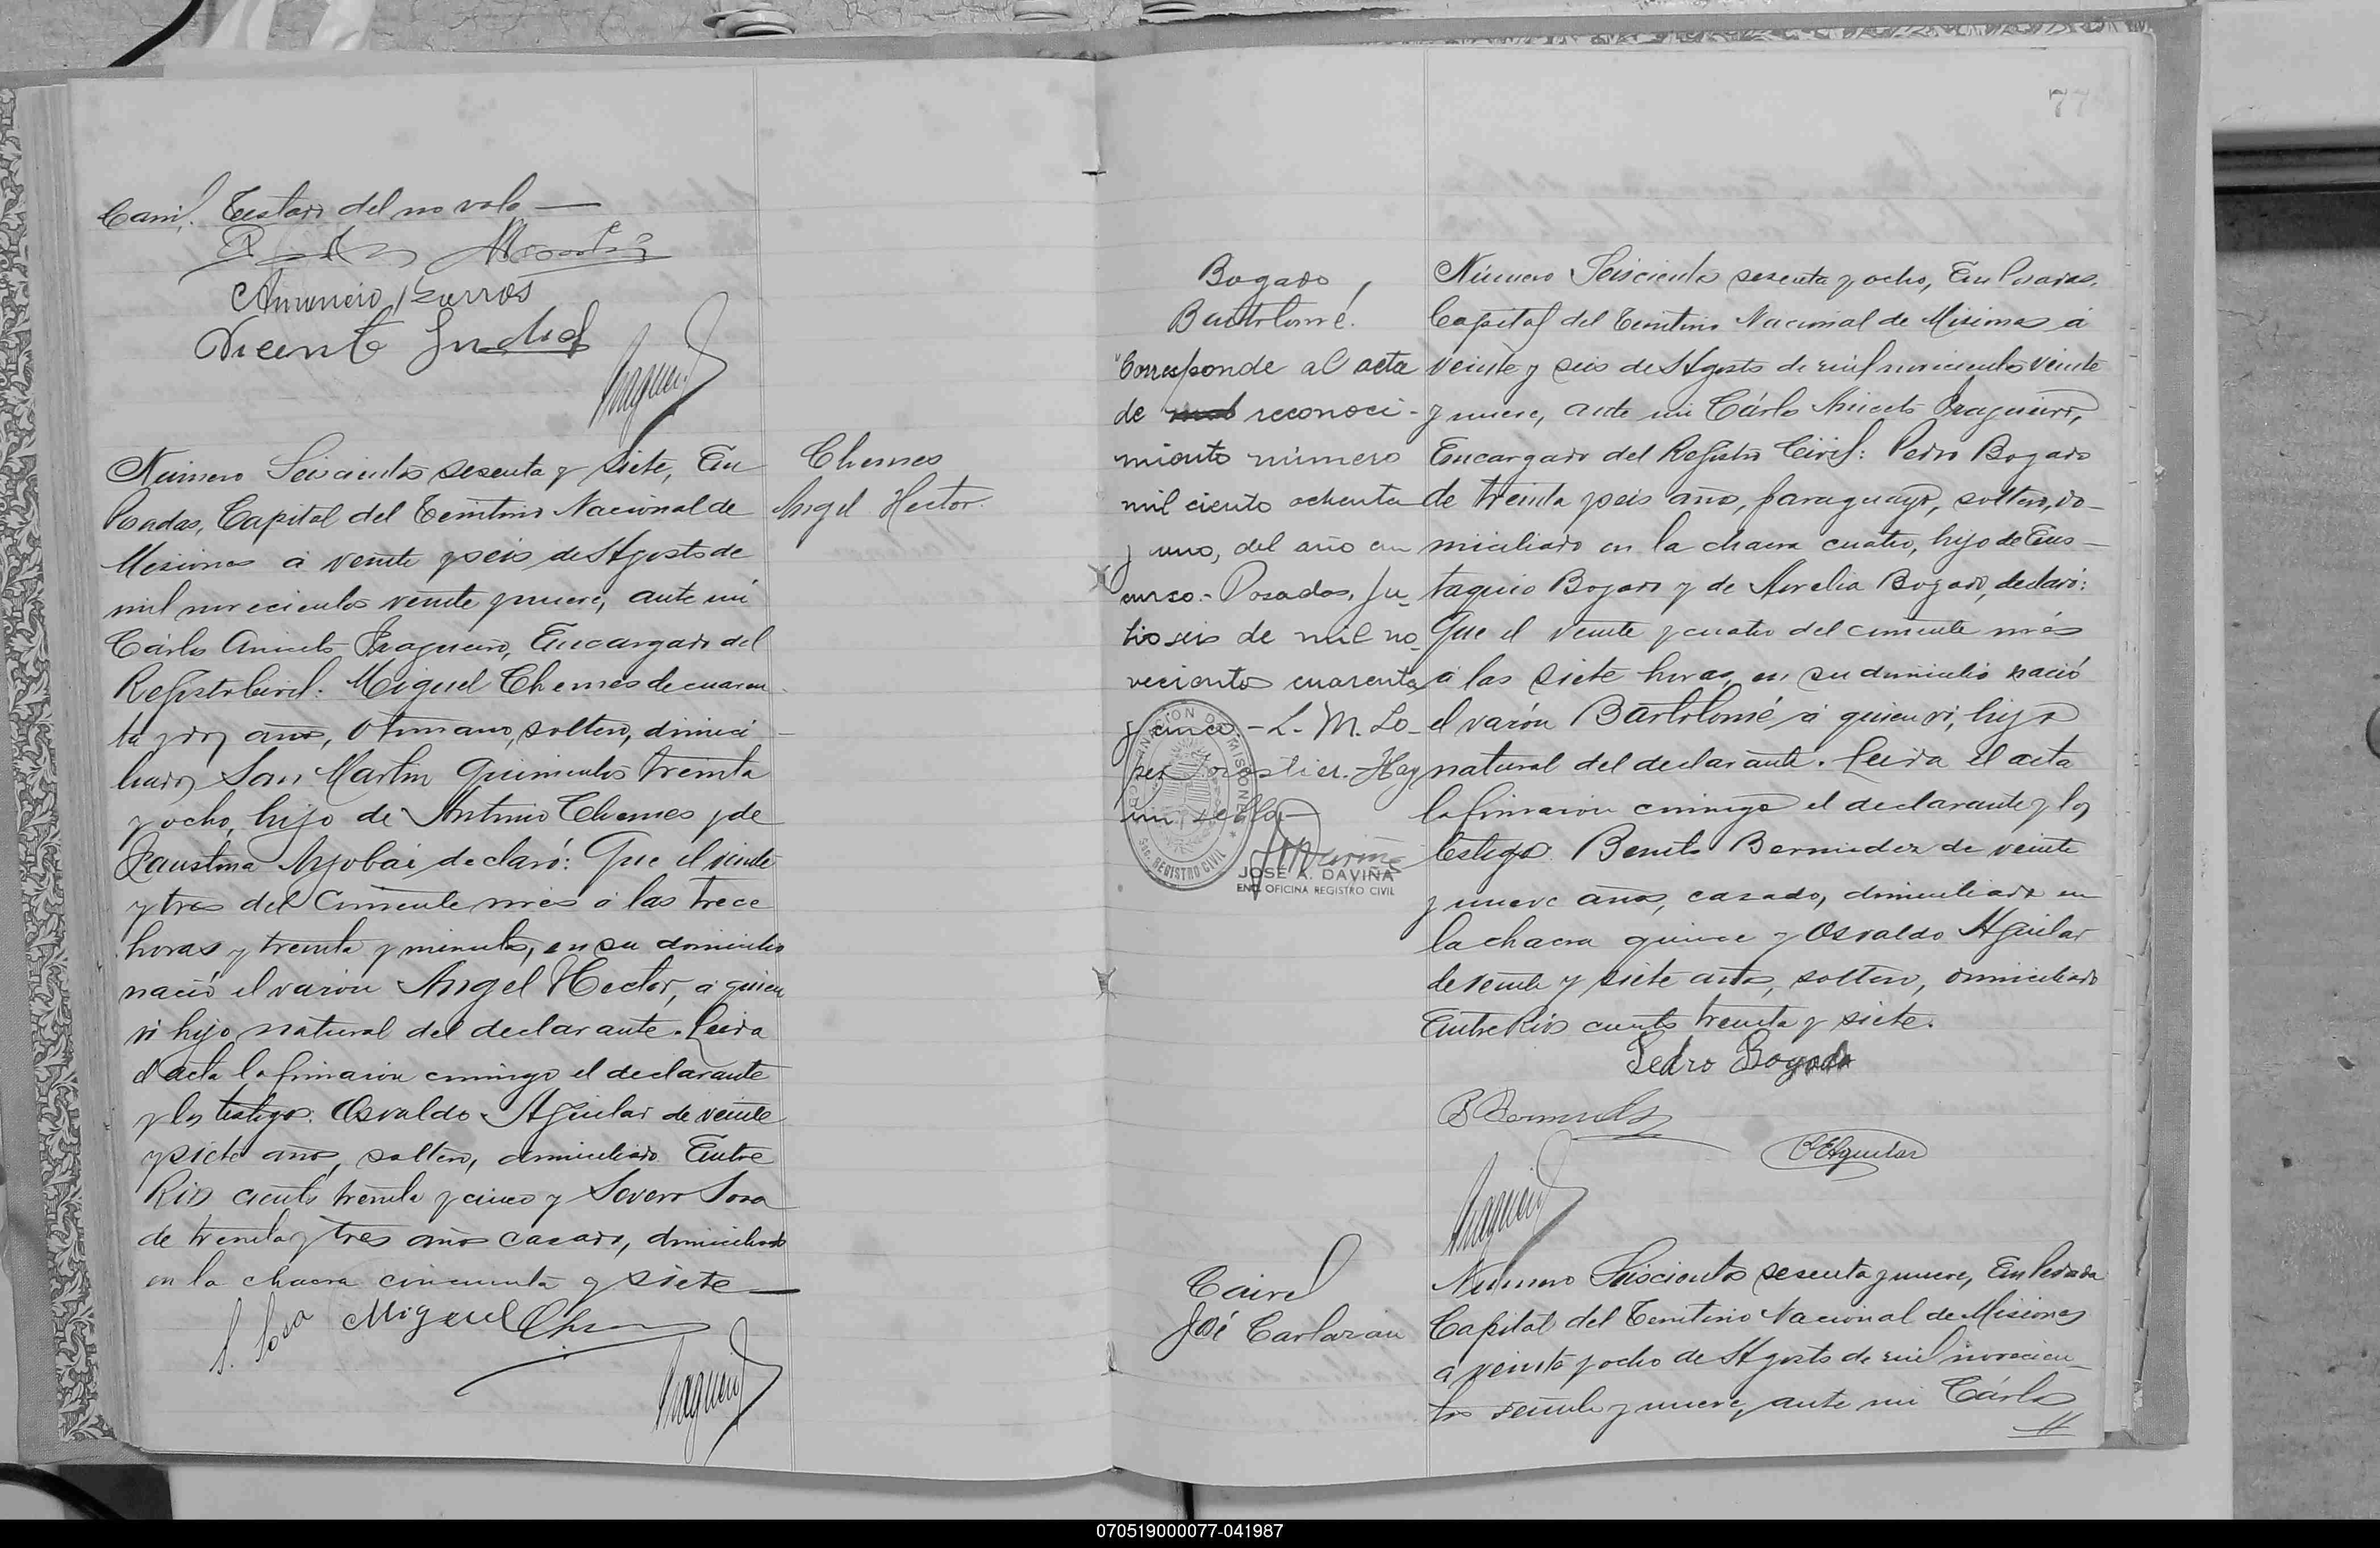 Camil. Testado del no vale —
Anuncio Barros
Vicente
Número Seiscientos sesenta y siete, En
Posadas, Capital del Territorio Nacional de
Misiones á veinte y seis de Agosto de
mil novecientos veinte y nueve, ante mi
Cárlos Aniceto Fragueiro, Encargado del
Registro Civil: Miguel Chemes de cuaren-
ta y dos años, Otomano, soltero, domici-
liado San Martin quinientos treinta
y ocho, hijo de Antonio Chemes y de
Faustina declaró: Que el veinte
y tres del corriente mes á las trece
horas y treinta y minutos, en su domicilio
nació el varón Angel Hector, á quien
ví hijo natural del declarante. Leida
el acta la firmaron conmigo el declarante
y los testigos: Osvaldo Aguilar de veinte
y siete años, soltero, domiciliado Entre
Rios ciento treinta y cinco y Severo Sosa
de treinta y tres años casado, domiciliado
en la chacra cincuenta y siete —
S. Sosa Miguel Chemes
Fragueiro
Chemes
Angel Hector.
77
Bogado,
Bartolomé.
"Corresponde al acta
de reconoci-
miento número
mil ciento ochenta
y uno, del año en
curso.- Posadas, Ju-
lio seis de mil no-
vecientos cuarenta
y cinco.- L. M. Lo-
pez Forastier. Hay
un sello.-
GOBERNACION DE MISIONES
Sec. REGISTRO CIVIL
JOSE A. DAVIÑA
ENC. OFICINA REGISTRO CIVIL
Número Seiscientos sesenta y ocho, En Posadas,
Capital del Territorio Nacional de Misiones á
veinte y seis de Agosto de mil novecientos veinte
y nueve, ante mi Cárlos Aniceto Fragueiro,
Encargado del Registro Civil: Pedro Bogado
de treinta y seis años, paraguayo, soltero, do-
miciliado en la chacra cuatro, hijo de Eus-
taquio Bogado y de Aurelia Bogado, declaró:
Que el veinte y cuatro del corriente més
á las siete horas, en su domicilio nació
el varón Bartolomé á quien ví, hijo
natural del declarante. Leida el acta
la firmaron conmigo el declarante y los
testigos: Benito Bermudez de veinte
y nueve años, casado, domiciliado en
la chacra quince y Osvaldo Aguilar
de veinte y siete años, soltero, domiciliado
Entre Rios ciento treinta y siete.
Pedro Bogado
B Bermudez
O Aguilar
Fragueiro
Cairel
José Carlazan
Número Seiscientos sesenta y nueve, En Posadas
Capital del Territorio Nacional de Misiones
á veinte y ocho de Agosto de mil novecien-
tos veinte y nueve, ante mi Cárlos
070519000077-041987